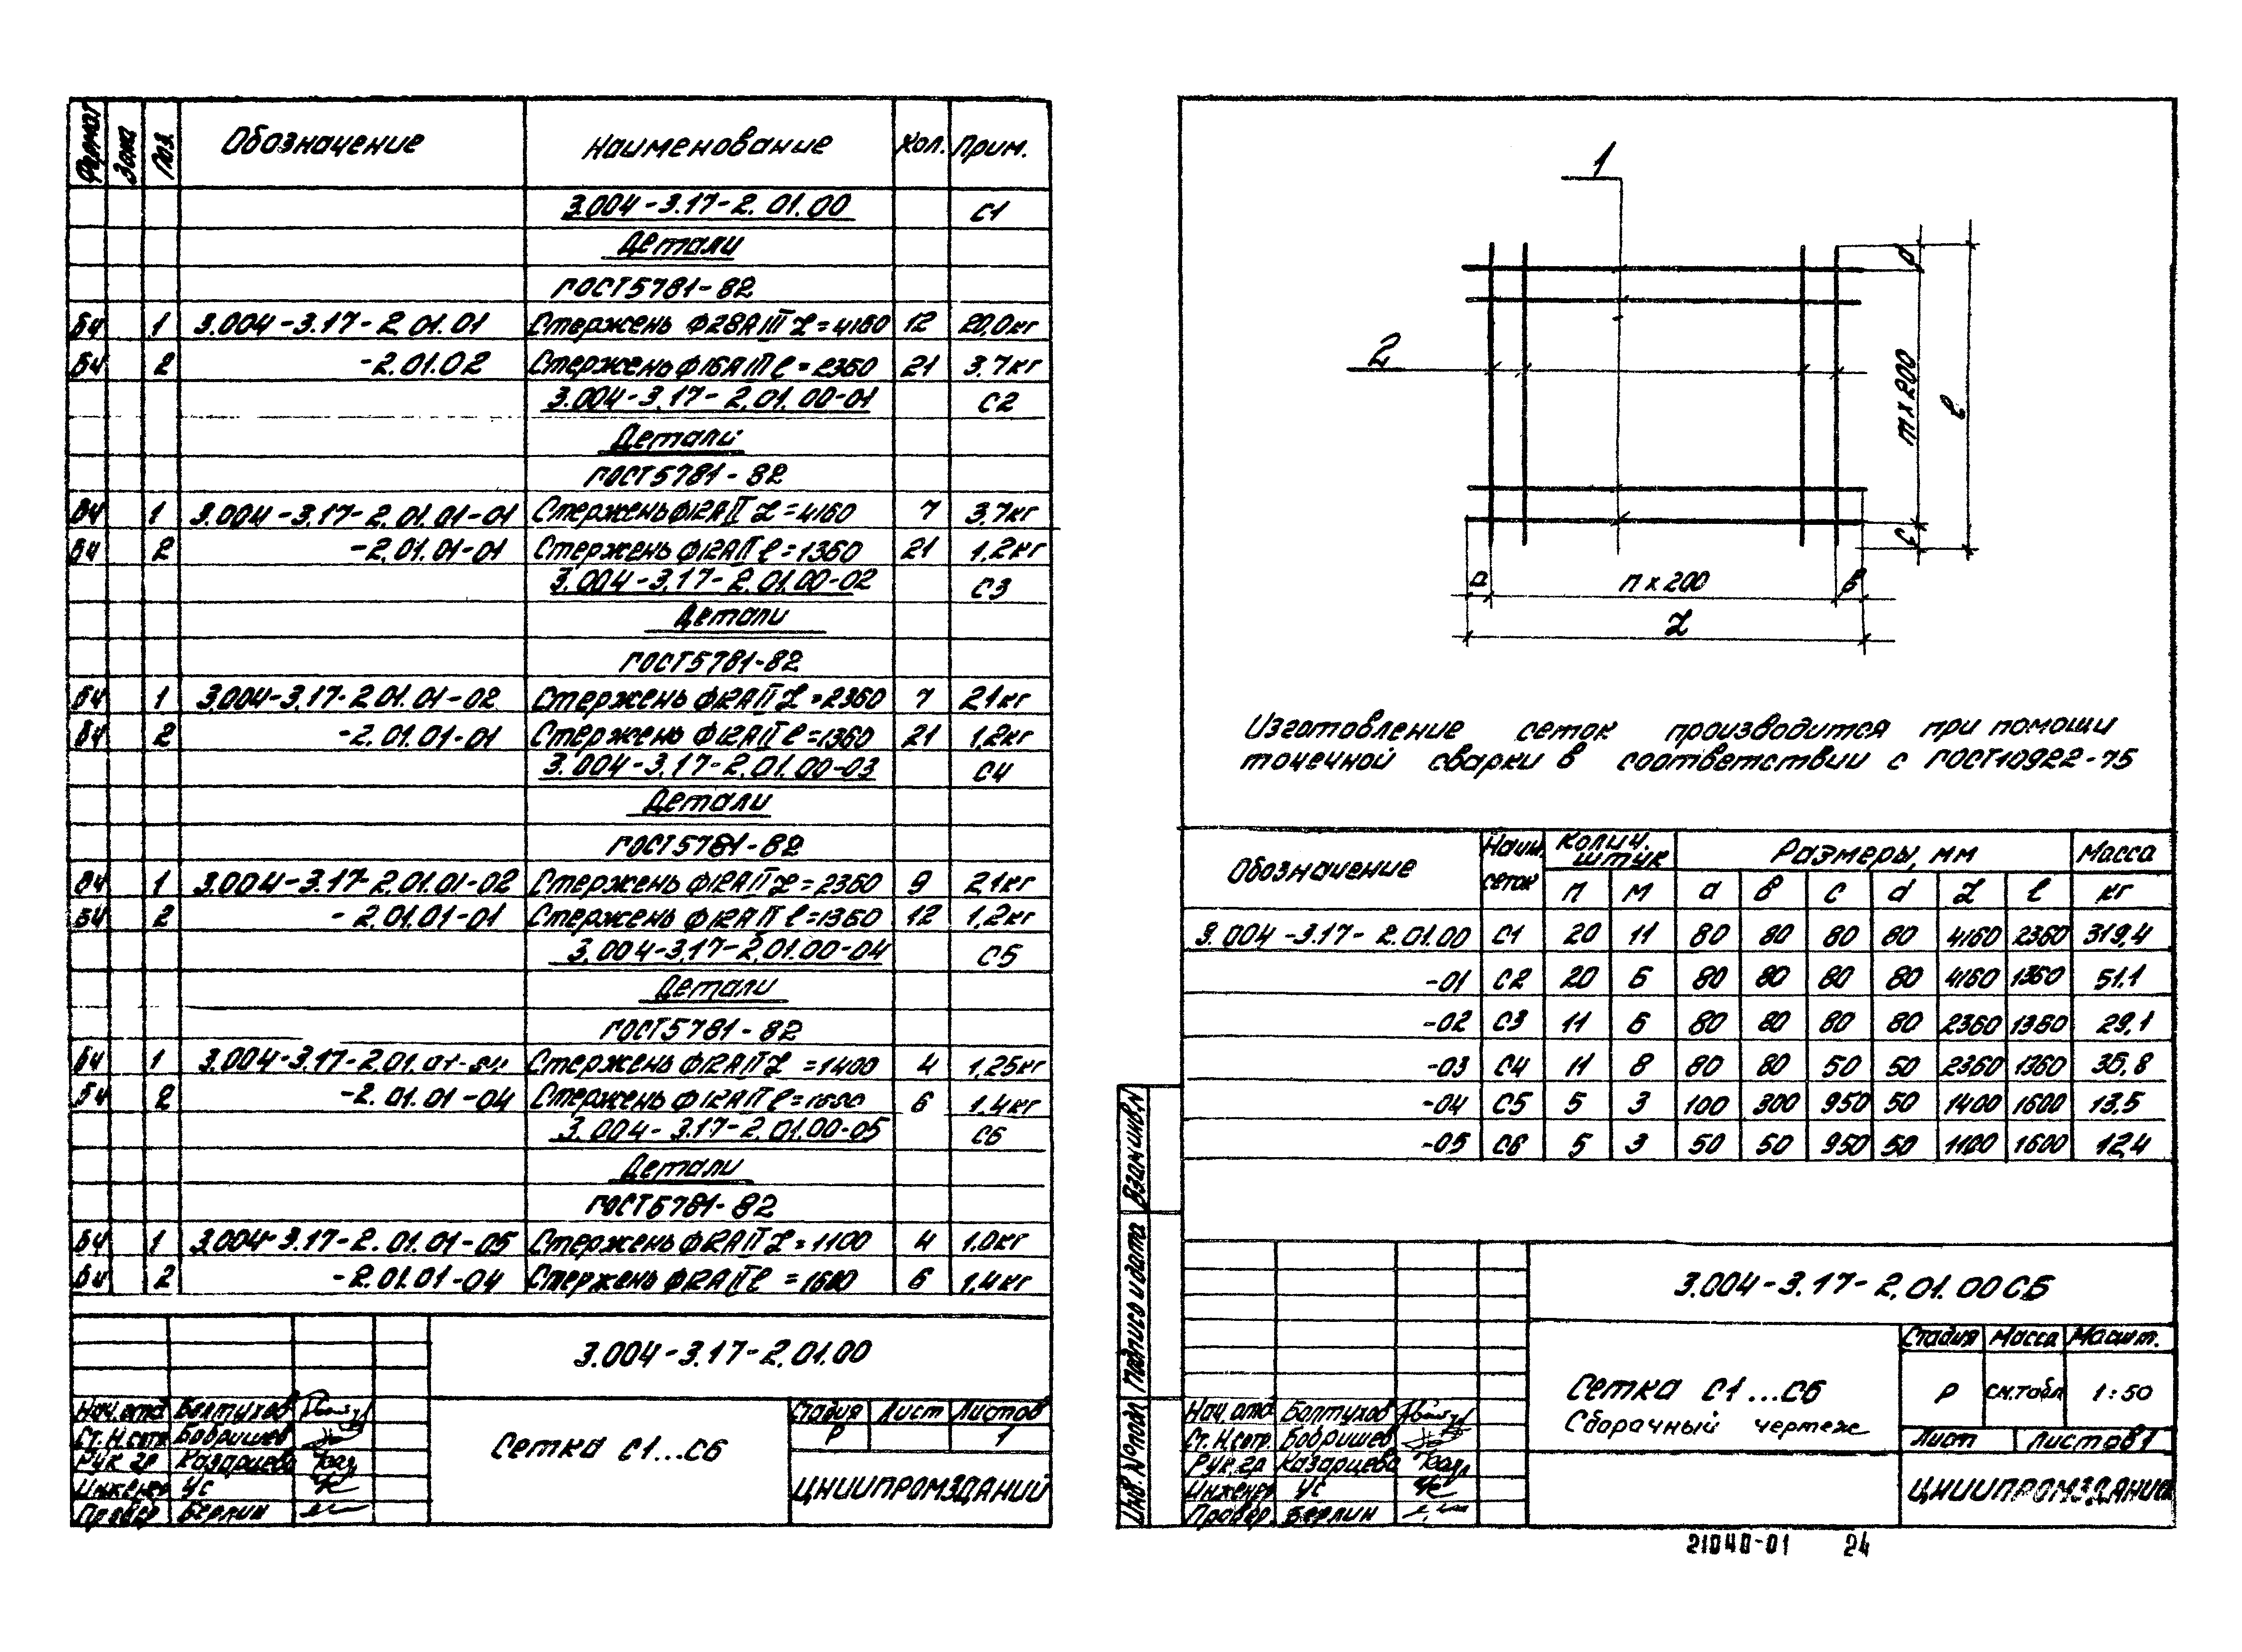 Формат Зона Поз. Обозначение Наименование Кол. Прим.
3.004-3.17-2.01.00 С1
Детали
ГОСТ 5781-82
БЧ 1 3.004-3.17-2.01.01 Стержень Ф28АIII L=4160 12 20,0кг
БЧ 2 -2.01.02 Стержень Ф16АIII ℓ=2360 21 3.7кг
3.004-3.17-2.01.00-01 С2
Детали
ГОСТ 5781-82
БЧ 1 3.004-3.17-2.01.01-01 Стержень Ф12АII L=4160 7 3,7кг
БЧ 2 -2.01.01-01 Стержень Ф12АII ℓ=1360 21 1.2кг
3.004-3.17-2.01.00-02 С3
Детали
ГОСТ 5781-82
БЧ 1 3.004-3.17-2.01.01-02 Стержень Ф12АII L=2360 7 2,1кг
БЧ 2 -2.01.01-01 Стержень Ф12АII ℓ=1360 21 1,2кг
3.004-3.17-2.01.00-03 С4
Детали
ГОСТ 5781-82
БЧ 1 3.004-3.17-2.01.01-02 Стержень Ф12АII L=2360 9 2,1кг
БЧ 2 -2.01.01-01 Стержень Ф12АII ℓ=1360 12 1,2кг
3.004-3.17-2.01.00-04 С5
Детали
ГОСТ 5781-82
БЧ 1 3.004-3.17-2.01.01-04 Стержень Ф12АII L=1400 4 1,25кг
БЧ 2 -2.01.01-04 Стержень Ф12АII ℓ=1600 6 1.4кг
3.004-3.17-2.01.00-05 С6
Детали
ГОСТ 5781-82
БЧ 1 3.004-3.17-2.01.01-05 Стержень Ф12АII L=1100 4 1.0кг
БЧ 2 -2.01.01-04 Стержень Ф12АII ℓ=1600 6 1,4кг
3.004-3.17-2.01.00
Нач. отд Болтухов
Ст. Н.сотр. Бобришев
Рук гр Казарцева
Инженер Ус
Провер Берлин
Сетка С1...С6
Стадия Лист Листов
Р 1
ЦНИИПРОМЗДАНИЙ
1
2
d
m x 200
ℓ
с
а
п x 200
в
L
Изготовление сеток производится при помощи
точечной сварки в соответствии с ГОСТ 10922-75
Обозначение Наим. сеток Колич. штук Размеры, мм Масса
п м а в с d L ℓ кг
3.004-3.17-2.01.00 С1 20 11 80 80 80 80 4160 2360 319,4
-01 С2 20 6 80 80 80 80 4160 1360 51.1
-02 С3 11 6 80 80 80 80 2360 1360 29,1
-03 С4 11 8 80 80 50 50 2360 1360 36,8
-04 С5 5 3 100 300 950 50 1400 1600 13.5
-05 С6 5 3 50 50 950 50 1100 1600 12,4
Взам инв N
Подпись и дата
Инв. N подл
3.004-3.17-2.01.00СБ
Сетка С1...С6
Сборочный чертеж
Стадия Масса Масшт.
Р см.табл 1:50
Лист Листов 1
ЦНИИПРОМЗДАНИЙ
Нач. отд Болтухов
Ст. Н.сотр. Бобришев
Рук. гр Казарцева
Инженер Ус
Провер. Берлин
21040-01 24